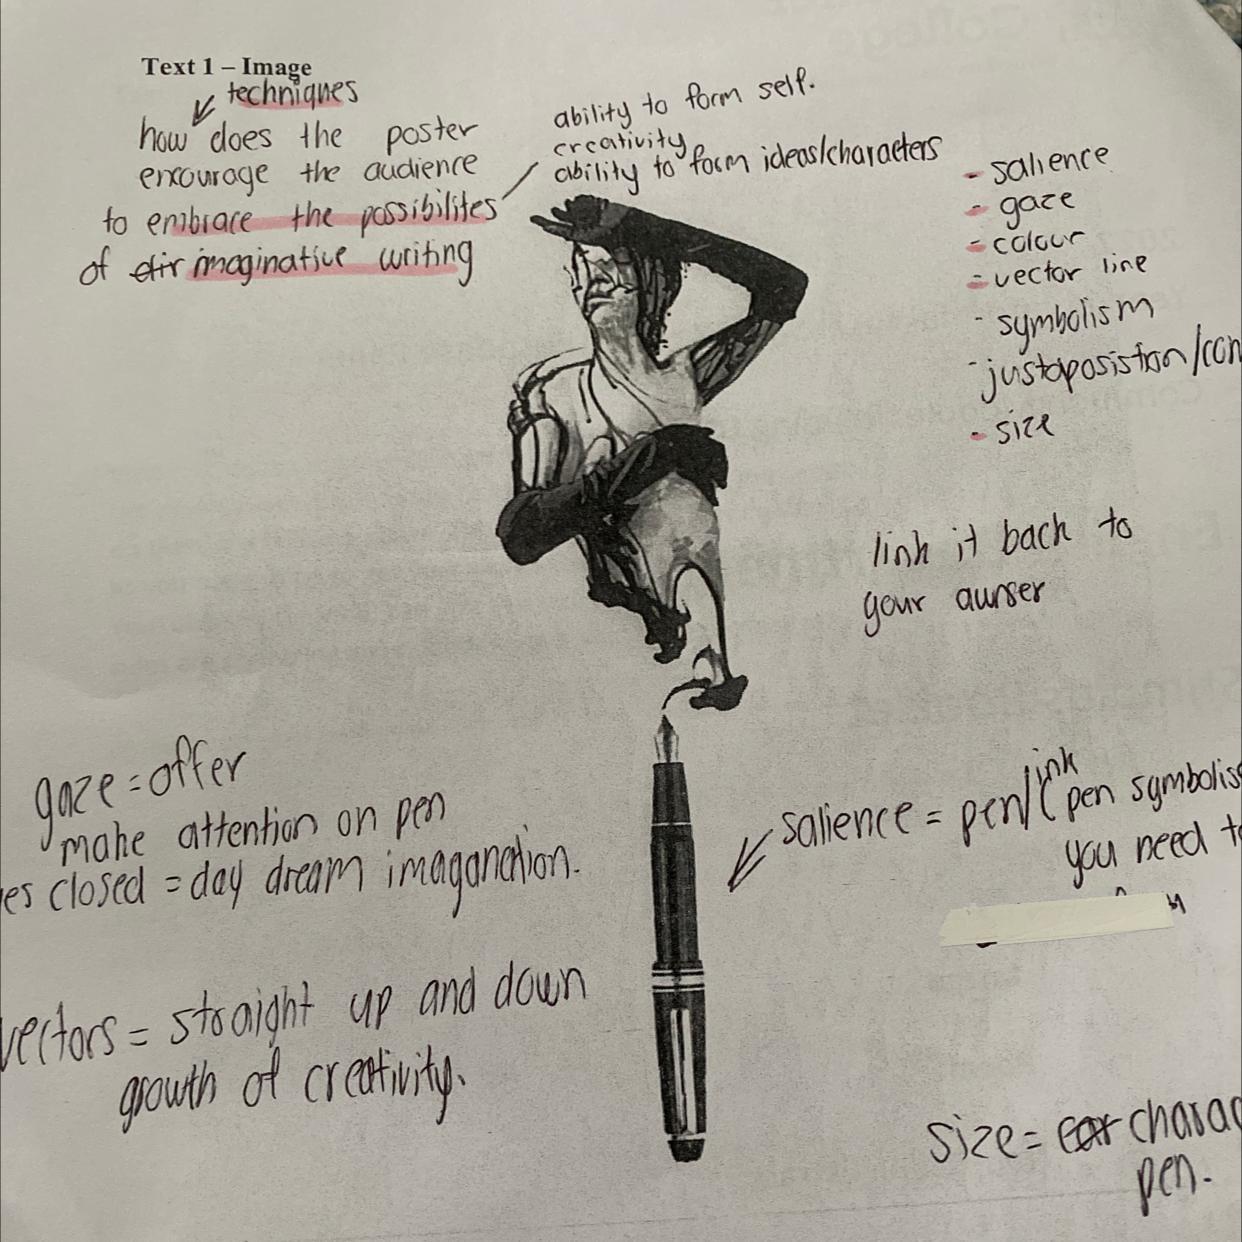 Text 1 – Image
techniques
how does the poster
encourage the audience
to embrace the possibilites
of imaginative writing
ability to form self.
creativity
ability to form ideas/characters
- salience
- gaze
- colour
- vector line
- symbolism
- justaposistion/con
- size
link it back to
your
gaze = offer
make attention on pen
es closed = day dream imaganation.
vectors = straight up and down
growth of creativity.
salience = pen/ink
(pen symbolis
you need t
size = charac
pen.